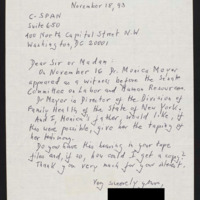 November 18, 93
C-SPAN
Suite 650
400 North Capitol Street N.W
Washington, DC 20001
Dear Sir or Madam:
On November 16 Dr. Monica Meyer
appeared as a witness before the Senate
Committee on Labor and Human Resources.
Dr Meyer is Director of the Division of
Family Health of the State of New York.
And I, Monica's father, would like, if
this were possible, give her the taping of
her testimony.
Do you have this hearing in your tape
files and, if so, how could I get a copy?
Thank you very much for your almost
Very sincerely yours,